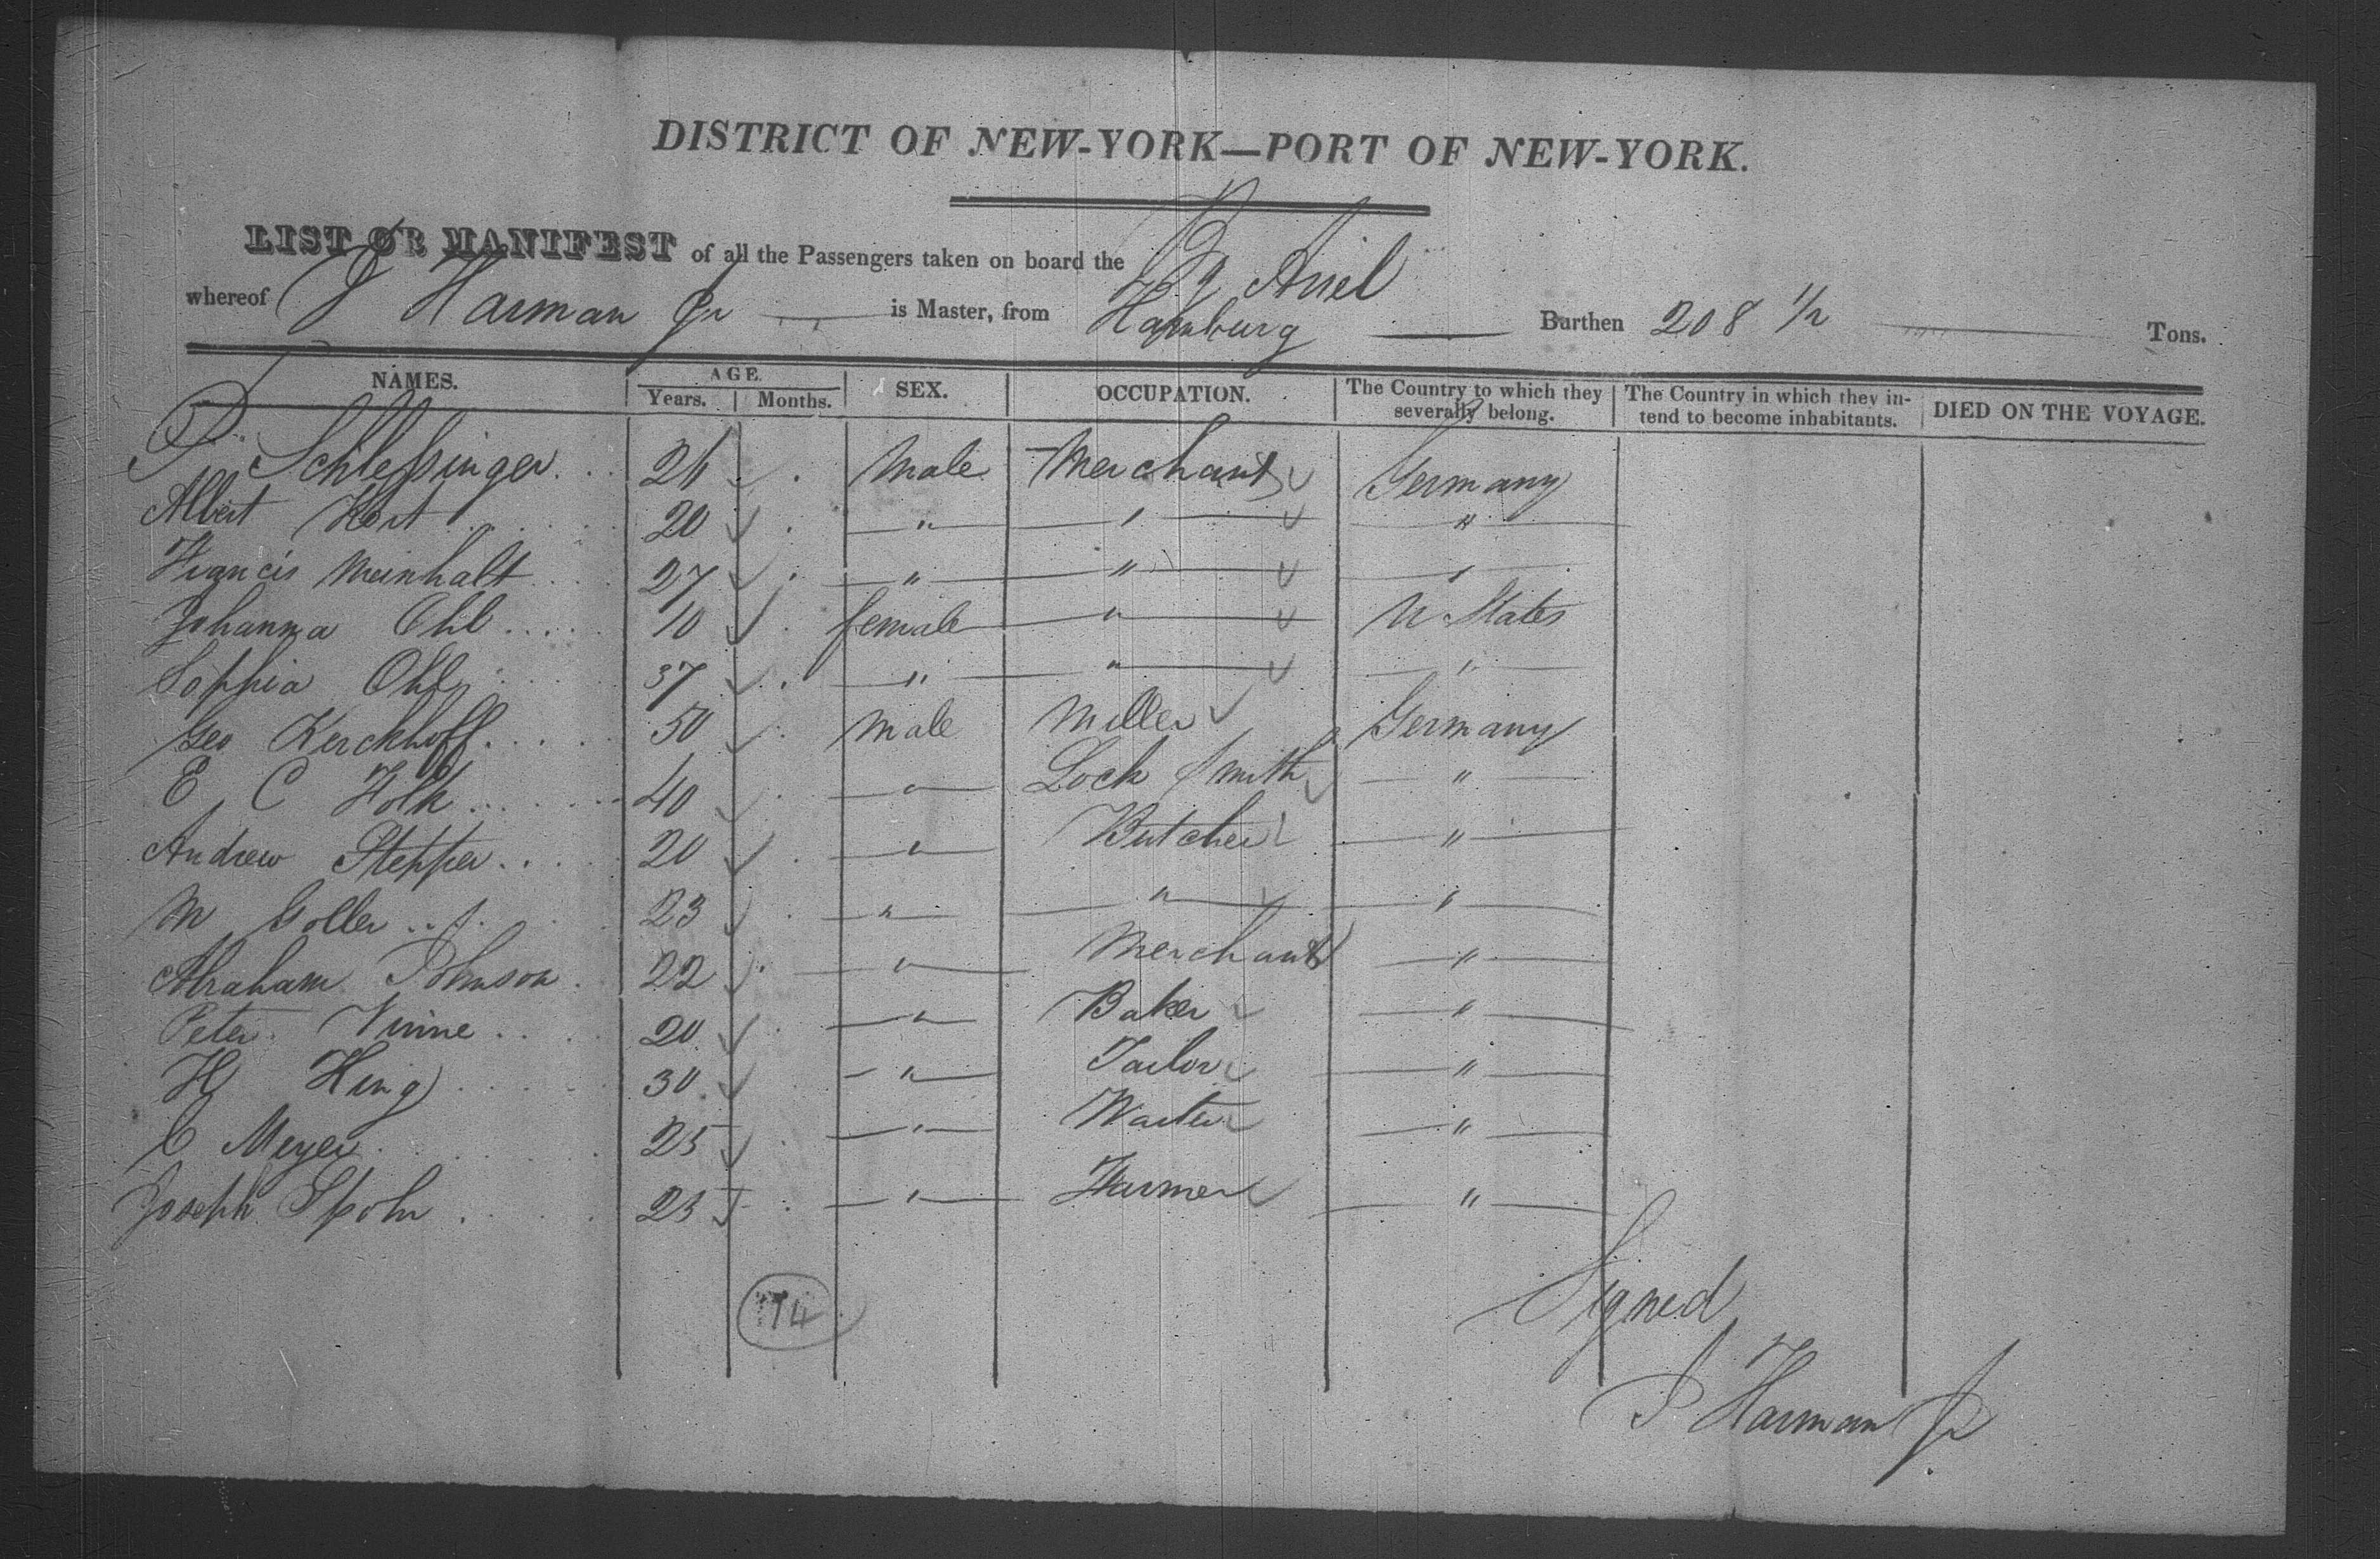 DISTRICT OF NEW-YORK—PORT OF NEW-YORK.
LIST OR MANIFEST of all the Passengers taken on board the Bg Ariel
whereof J Harman Jr is Master, from Hamburg Burthen 208 1/2 Tons.
NAMES. AGE. Years. Months. SEX. OCCUPATION. The Country to which they severally belong. The Country in which they intend to become inhabitants. DIED ON THE VOYAGE.
Schlessinger 26 Male Merchant Germany
Albert Kort 20 " " "
Francis Meinhalt 27 " " "
Johanna Ohl 10 female " U States
Sophia Ohl 37 " " "
Geo Kerckhoff 50 Male Miller Germany
E C Folk 40 " Lock Smith "
Andrew Stepper 20 " Butcher "
M Goller 23 " " "
Abraham Johnson 22 " Merchant "
Peter Vinine 20 " Baker "
H King 30 " Tailor "
C Meyer 25 " Waiter "
Joseph Spohr 25 " Farmer "
14
Signed
J Harman Jr